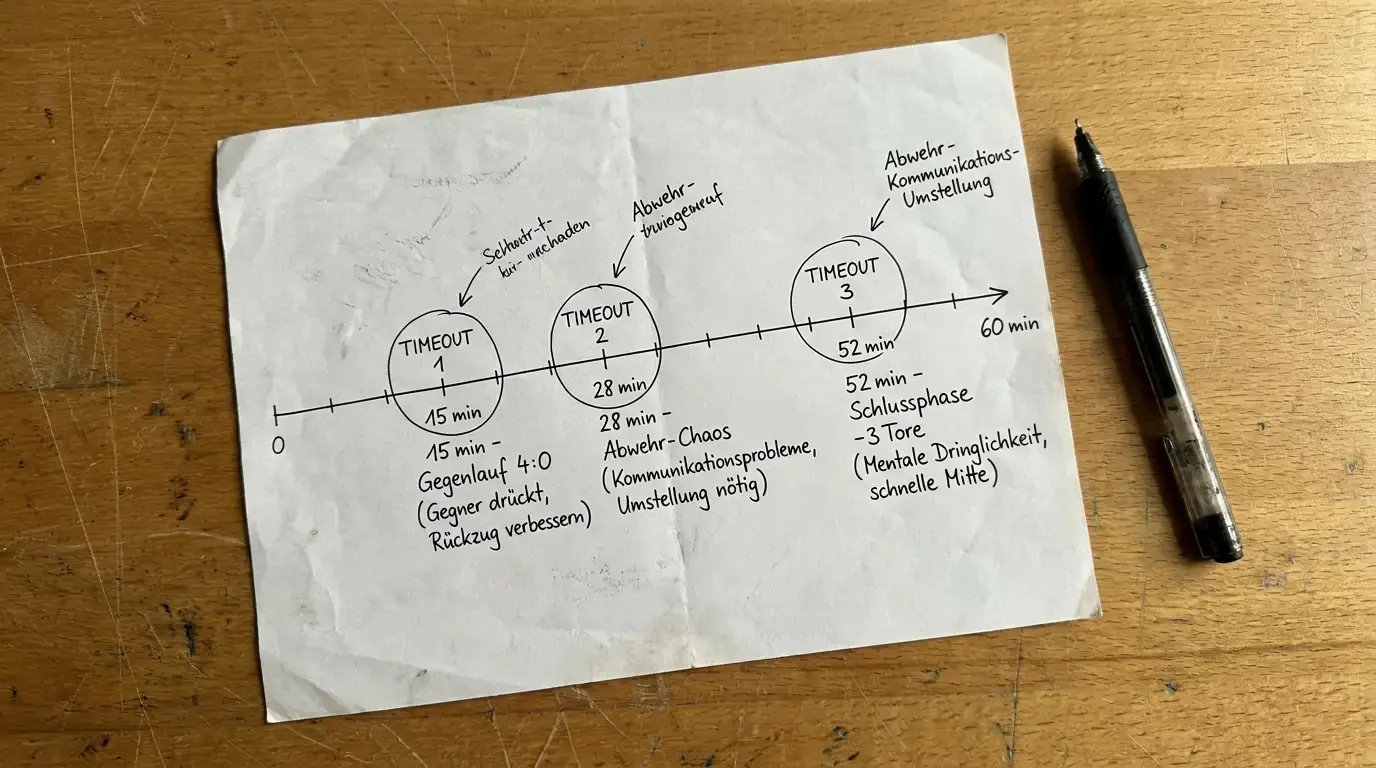 Abwehr-
Abwehr-
Kommunikations-
Umstellung
TIMEOUT
1
15 min
TIMEOUT
2
28 min
TIMEOUT
3
52 min
0
60 min
15 min –
Gegenlauf 4:0
(Gegner drückt,
Rückzug verbessern)
28 min –
Abwehr-Chaos
(Kommunikationsprobleme,
Umstellung nötig)
52 min –
Schlussphase
-3 Tore
(Mentale Dringlichkeit,
schnelle Mitte)